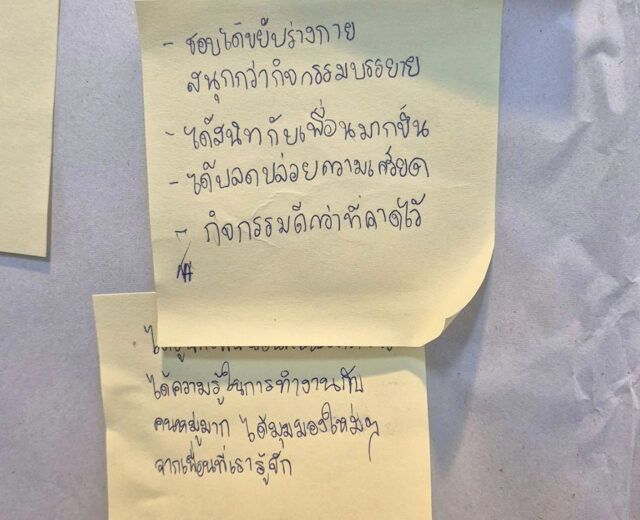 - ชอบได้ขยับร่างกาย
สนุกกว่ากิจกรรมบรรยาย
- ได้สนิทกับเพื่อนมากขึ้น
- ได้ปลดปล่อยความเครียด
- กิจกรรมดีกว่าที่คาดไว้
ได้ความรู้ในการทำงานกับ
คนหมู่มาก ได้มุมมองใหม่ๆ
จากเพื่อนที่เรารู้จัก